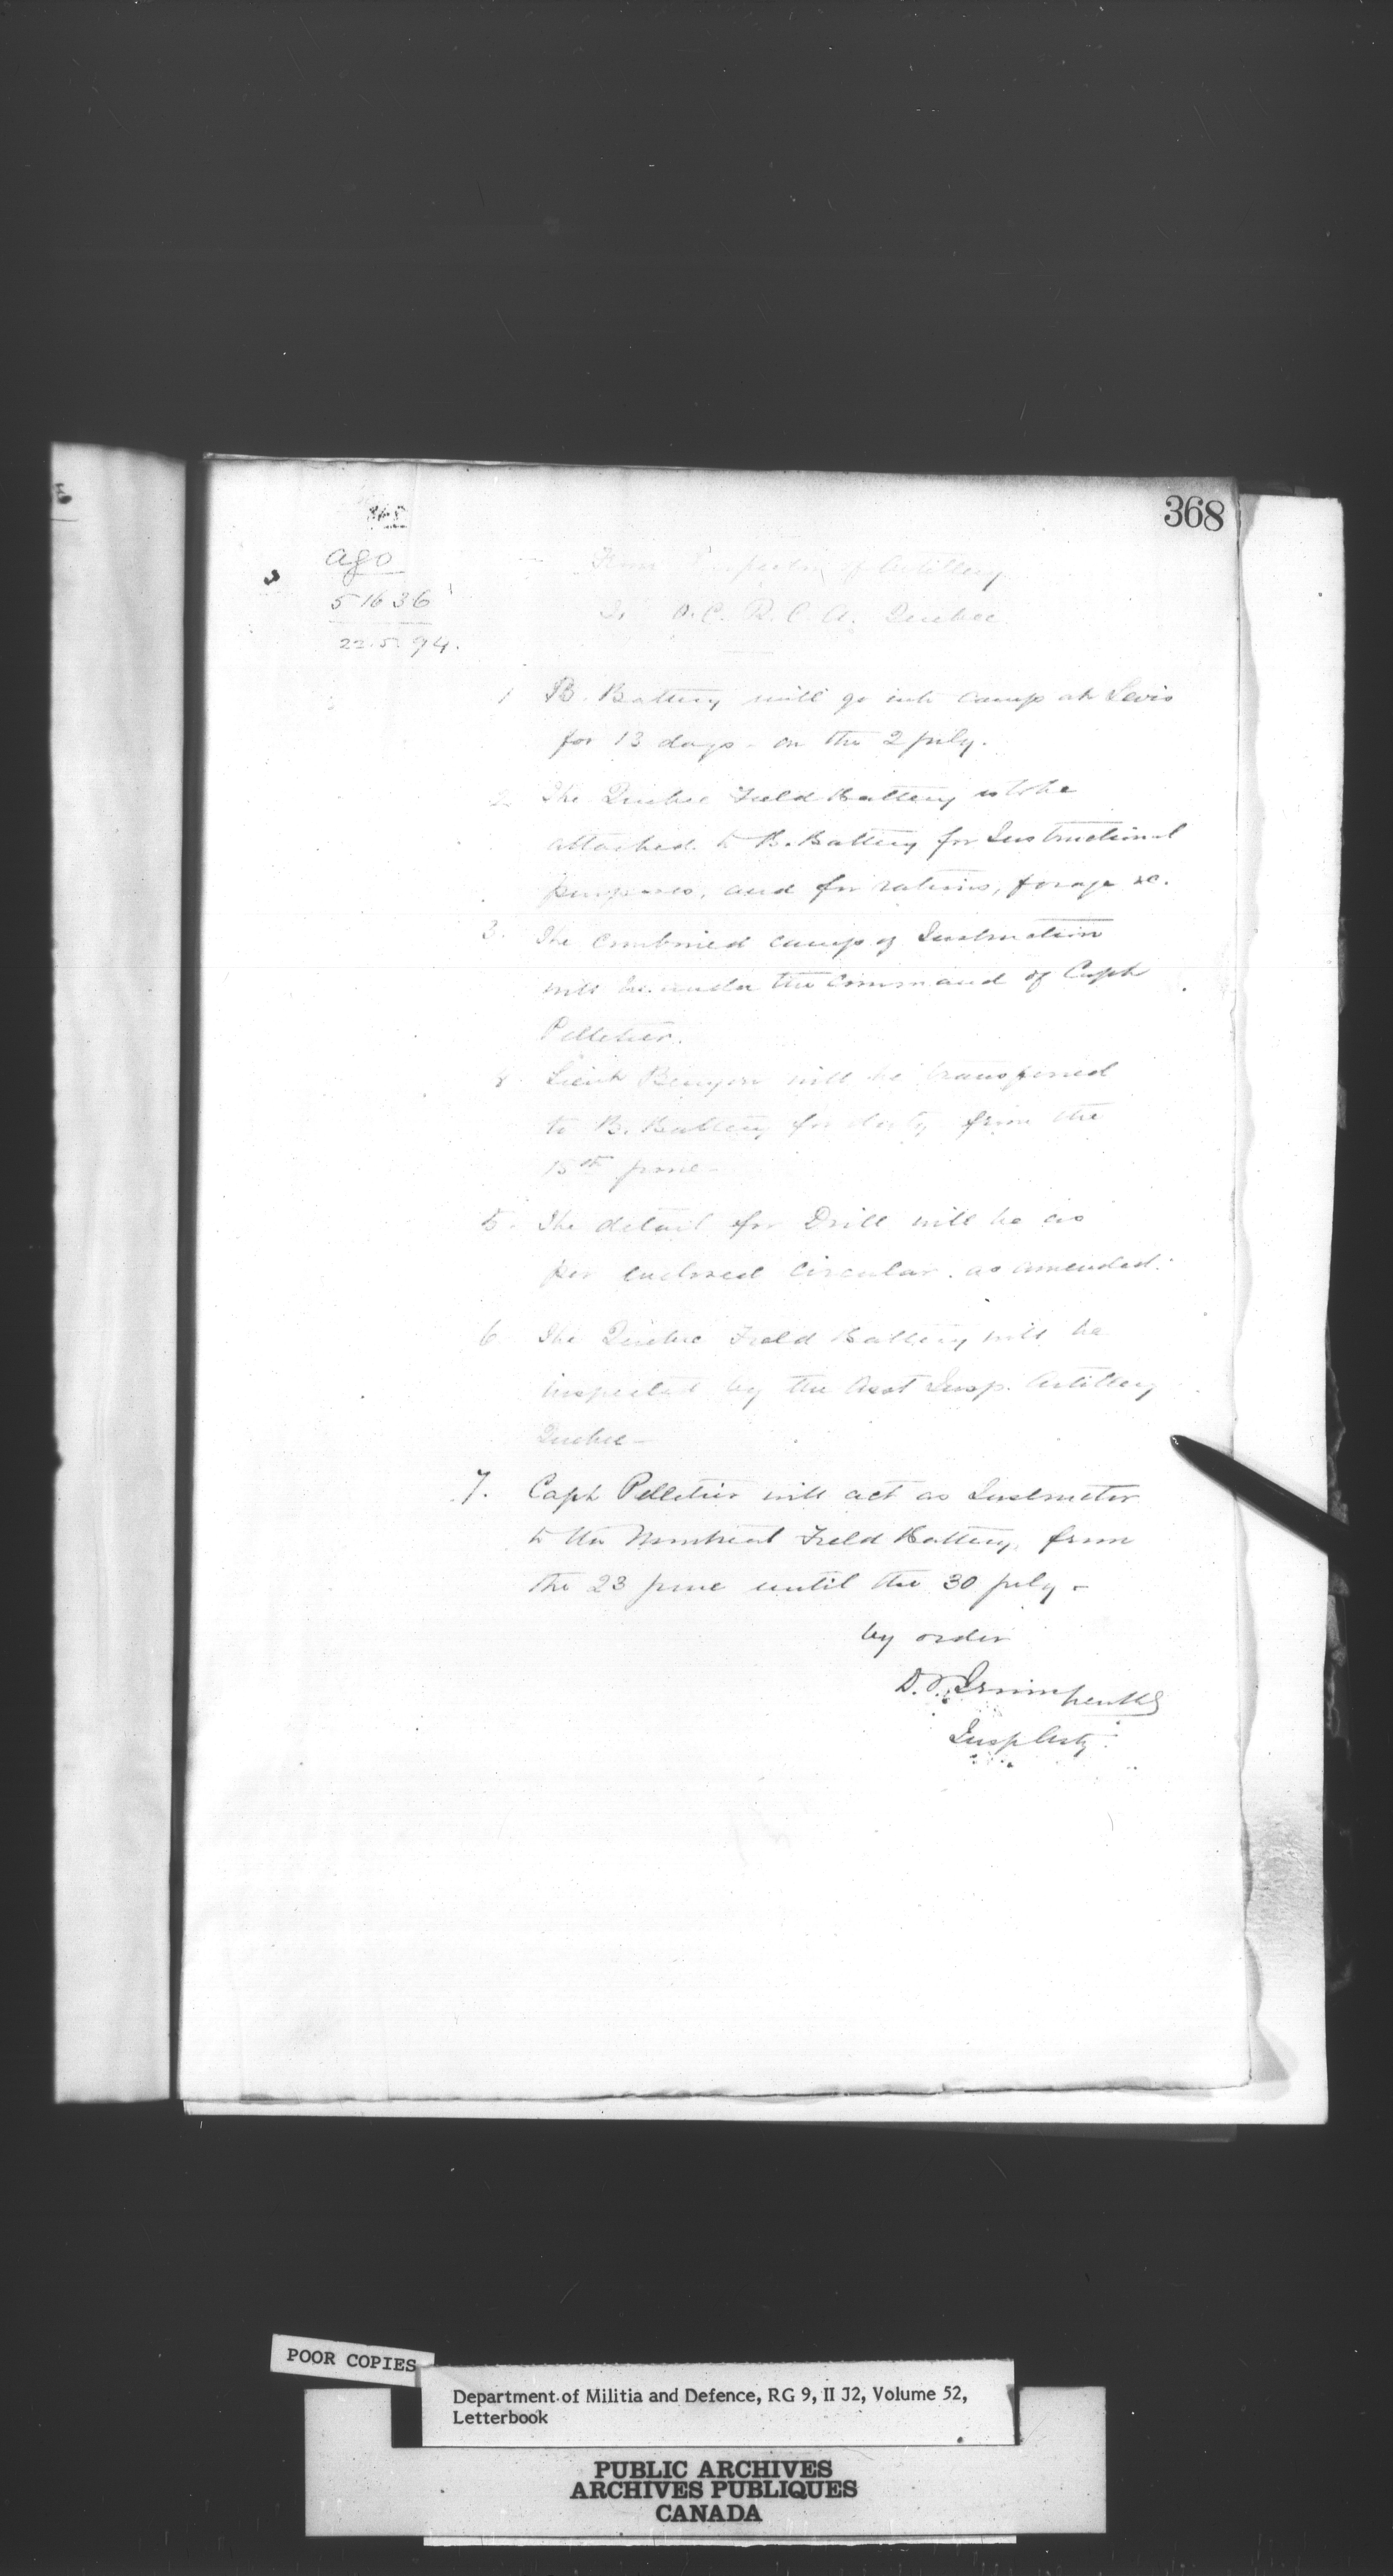 368
ago
51636
22.5.94.
From Inspector of Artillery
To O.C. R.C.A. Quebec
1 B. Battery will go into camp at Levis
for 13 days - on the 2 july.
2. The Quebec Field Battery is to be
attached to B. Battery for Instructional
purposes, and for rations, forage &c.
3. The combined camp of Instruction
will be under the Command of Capt
Pelletier.
4 Lieut Benyon will be transferred
to B. Battery for duty from the
15th june -
5. The detail for Drill will be as
per enclosed circular. as amended.
6 The Quebec Field Battery will be
inspected by the Asst Insp. Artillery
Quebec -
7. Capt Pelletier will act as Instructor
to the Montreal Field Battery, from
the 23 june until the 30 july -
by order
D.T. Irwin
Insp Arty
POOR COPIES
Department of Militia and Defence, RG 9, II J2, Volume 52,
Letterbook
PUBLIC ARCHIVES
ARCHIVES PUBLIQUES
CANADA